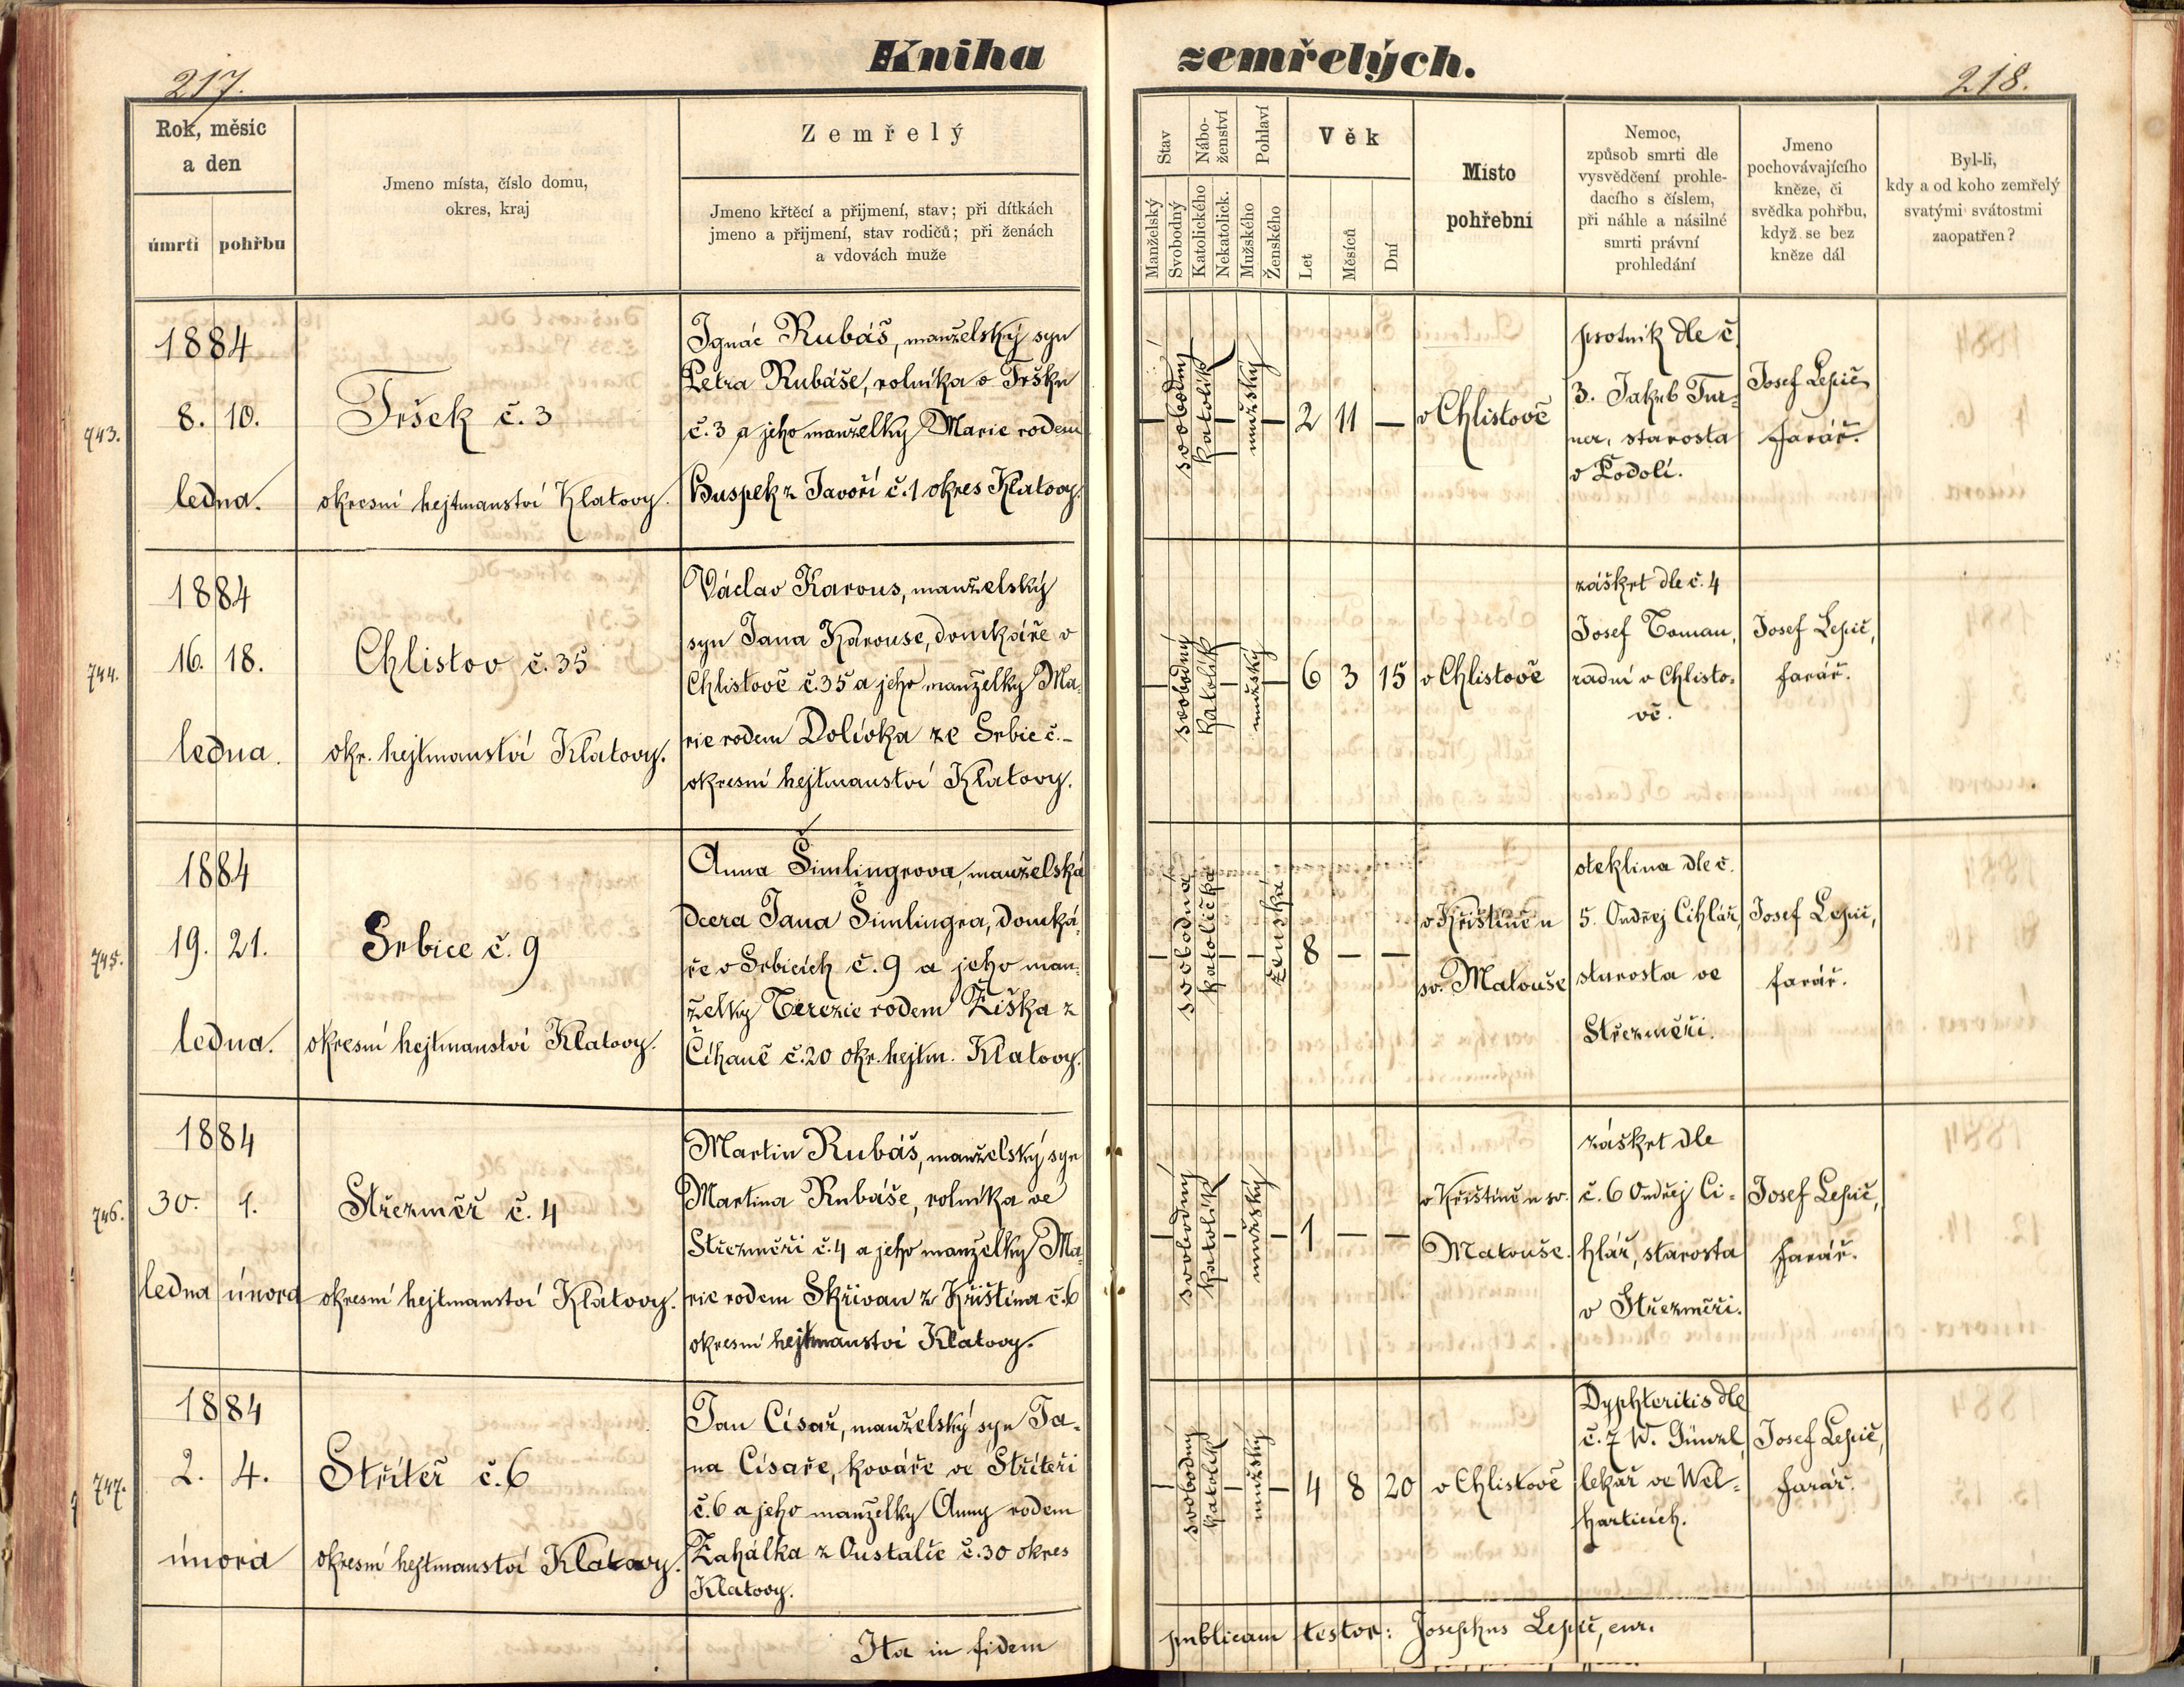 Kniha zemřelých.
217.
218.
Rok, měsíc
a den
úmrtí pohřbu
Jmeno místa, číslo domu,
okres, kraj
Zemřelý
Jmeno křtěcí a přijmení, stav; při dítkách
jmeno a přijmení, stav rodičů; při ženách
a vdovách muže
Stav
Manželský
Svobodný
Nábo-
ženství
Katolického
Nekatolick.
Pohlaví
Mužského
Ženského
Věk
Let
Měsíců
Dní
Místo
pohřební
Nemoc,
způsob smrti dle
vysvědčení prohle-
dacího s číslem,
při náhle a násilné
smrti právní
prohledání
Jmeno
pochovávajícího
kněze, či
svědka pohřbu,
když se bez
kněze dál
Byl-li,
kdy a od koho zemřelý
svatými svátostmi
zaopatřen?
743.
1884
8. 10.
ledna.
Tršek č. 3
okresní hejtmanství Klatovy.
Ignác Rubáš, manželský syn
Petra Rubáše, rolníka v Tršku
č. 3 a jeho manželky Marie rodem
Huspek z Javoří č. 1 okres Klatovy.
— svobodný katolík — mužský —
2 11 —
v Chlistově
psotník dle č.
3. Jakub Tur-
ner, starosta
v Podolí.
Josef Lepič,
farář.
744.
1884
16. 18.
ledna.
Chlistov č. 35
okr. hejtmanství Klatovy.
Václav Karous, manželský
syn Jana Karouse, domkáře v
Chlistově č. 35 a jeho manželky Ma-
rie rodem Dolivka ze Srbic č. –
okresní hejtmanství Klatovy.
— svobodný katolík — mužský —
6 3 15
v Chlistově
záškrt dle č. 4
Josef Toman,
radní v Chlisto-
vě.
Josef Lepič,
farář.
745.
1884
19. 21.
ledna.
Srbice č. 9
okresní hejtmanství Klatovy.
Anna Šimlingrova, manželská
dcera Jana Šimlingra, domká-
ře v Srbicích č. 9 a jeho man-
želky Terezie rodem Žiška z
Číhaně č. 20 okr. hejtm. Klatovy.
— svobodná katolička — — ženská
8 — —
v Křištíně u
sv. Matouše
oteklina dle č.
5. Ondřej Cihlář,
starosta ve
Střezměři.
Josef Lepič,
farář.
746.
1884
30. 1.
ledna února
Střezměř č. 4
okresní hejtmanství Klatovy.
Martin Rubáš, manželský syn
Martina Rubáše, rolníka ve
Střezměři č. 4 a jeho manželky Ma-
rie rodem Skřivan z Křištína č. 6
okresní hejtmanství Klatovy.
— svobodný katolík — mužský —
1 — —
v Křištíně u sv.
Matouše.
záškrt dle
č. 6 Ondřej Ci-
hlář, starosta
v Střezměři.
Josef Lepič,
farář.
747.
1884
2. 4.
února
Střítěř č. 6
okresní hejtmanství Klatovy.
Jan Císař, manželský syn Ja-
na Císaře, kováře ve Stříteři
č. 6 a jeho manželky Anny rodem
Zahálka z Oustalče č. 30 okres
Klatovy.
— svobodný katolík — mužský —
4 8 20
v Chlistově
Dyphteritis dle
č. 7 W. Günzl
lékař ve Wel-
harticích.
Josef Lepič,
farář.
Ita in fidem publicam testor: Josephus Lepič, cur.